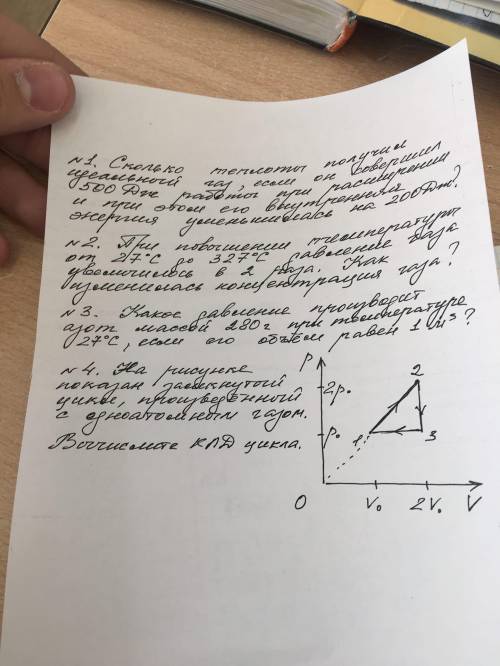 №1. Сколько теплоты получил
идеальный газ, если он совершил
500 Дж работы при расширении
и при этом его внутренняя
энергия уменьшилась на 200 Дж?
№2. При повышении температуры
от 27°С до 327°С давление газа
увеличилось в 2 раза. Как
изменилась концентрация газа?
№3. Какое давление производит
азот массой 280 г при температуре
27°С, если его объём равен 1 м³?
№4. На рисунке
показан замкнутый
цикл, произведённый
с одноатомным газом.
Вычислите КПД цикла.
P
2
2p₀
p₀
1
3
0
V₀
2V₀
V